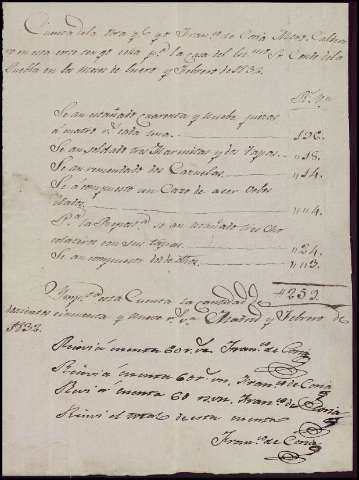 Cuenta de la obra q.e yo Fran.co de Coria Mtro. Caldere
ro en esta corte tengo echa p.a la casa del Ex.mo S.r Conde de la
Puebla en los meses de Enero y Febrero de 1732.
R.s V.n
Se an estañado cuarenta y nueve piezas
a quatro r.s cada una. 196.
Se an soldado tres Marmitas y dos tapas. 18.
Se an remendado dos Cazuelas. 14.
Se a compuesto un Cazo de
lado. 4.
P.a la Repost.a se an estañado tres Cho
colateras con sus tapas. 24.
Se an compuesto 3.
259.
Ymp.ta esta Cuenta la cantidad de
doscientos cinquenta y nueve r.s V.n Madrid y Febrero de
1732.
Reciví á cuenta 60 r.s v.n Fran.co de Coria
Reciví á cuenta 60 r.s v.n Fran.co de Coria
Reciví á cuenta 60 r.s v.n Fran.co de Coria
Reciví el total de esta cuenta
Fran.co de Coria